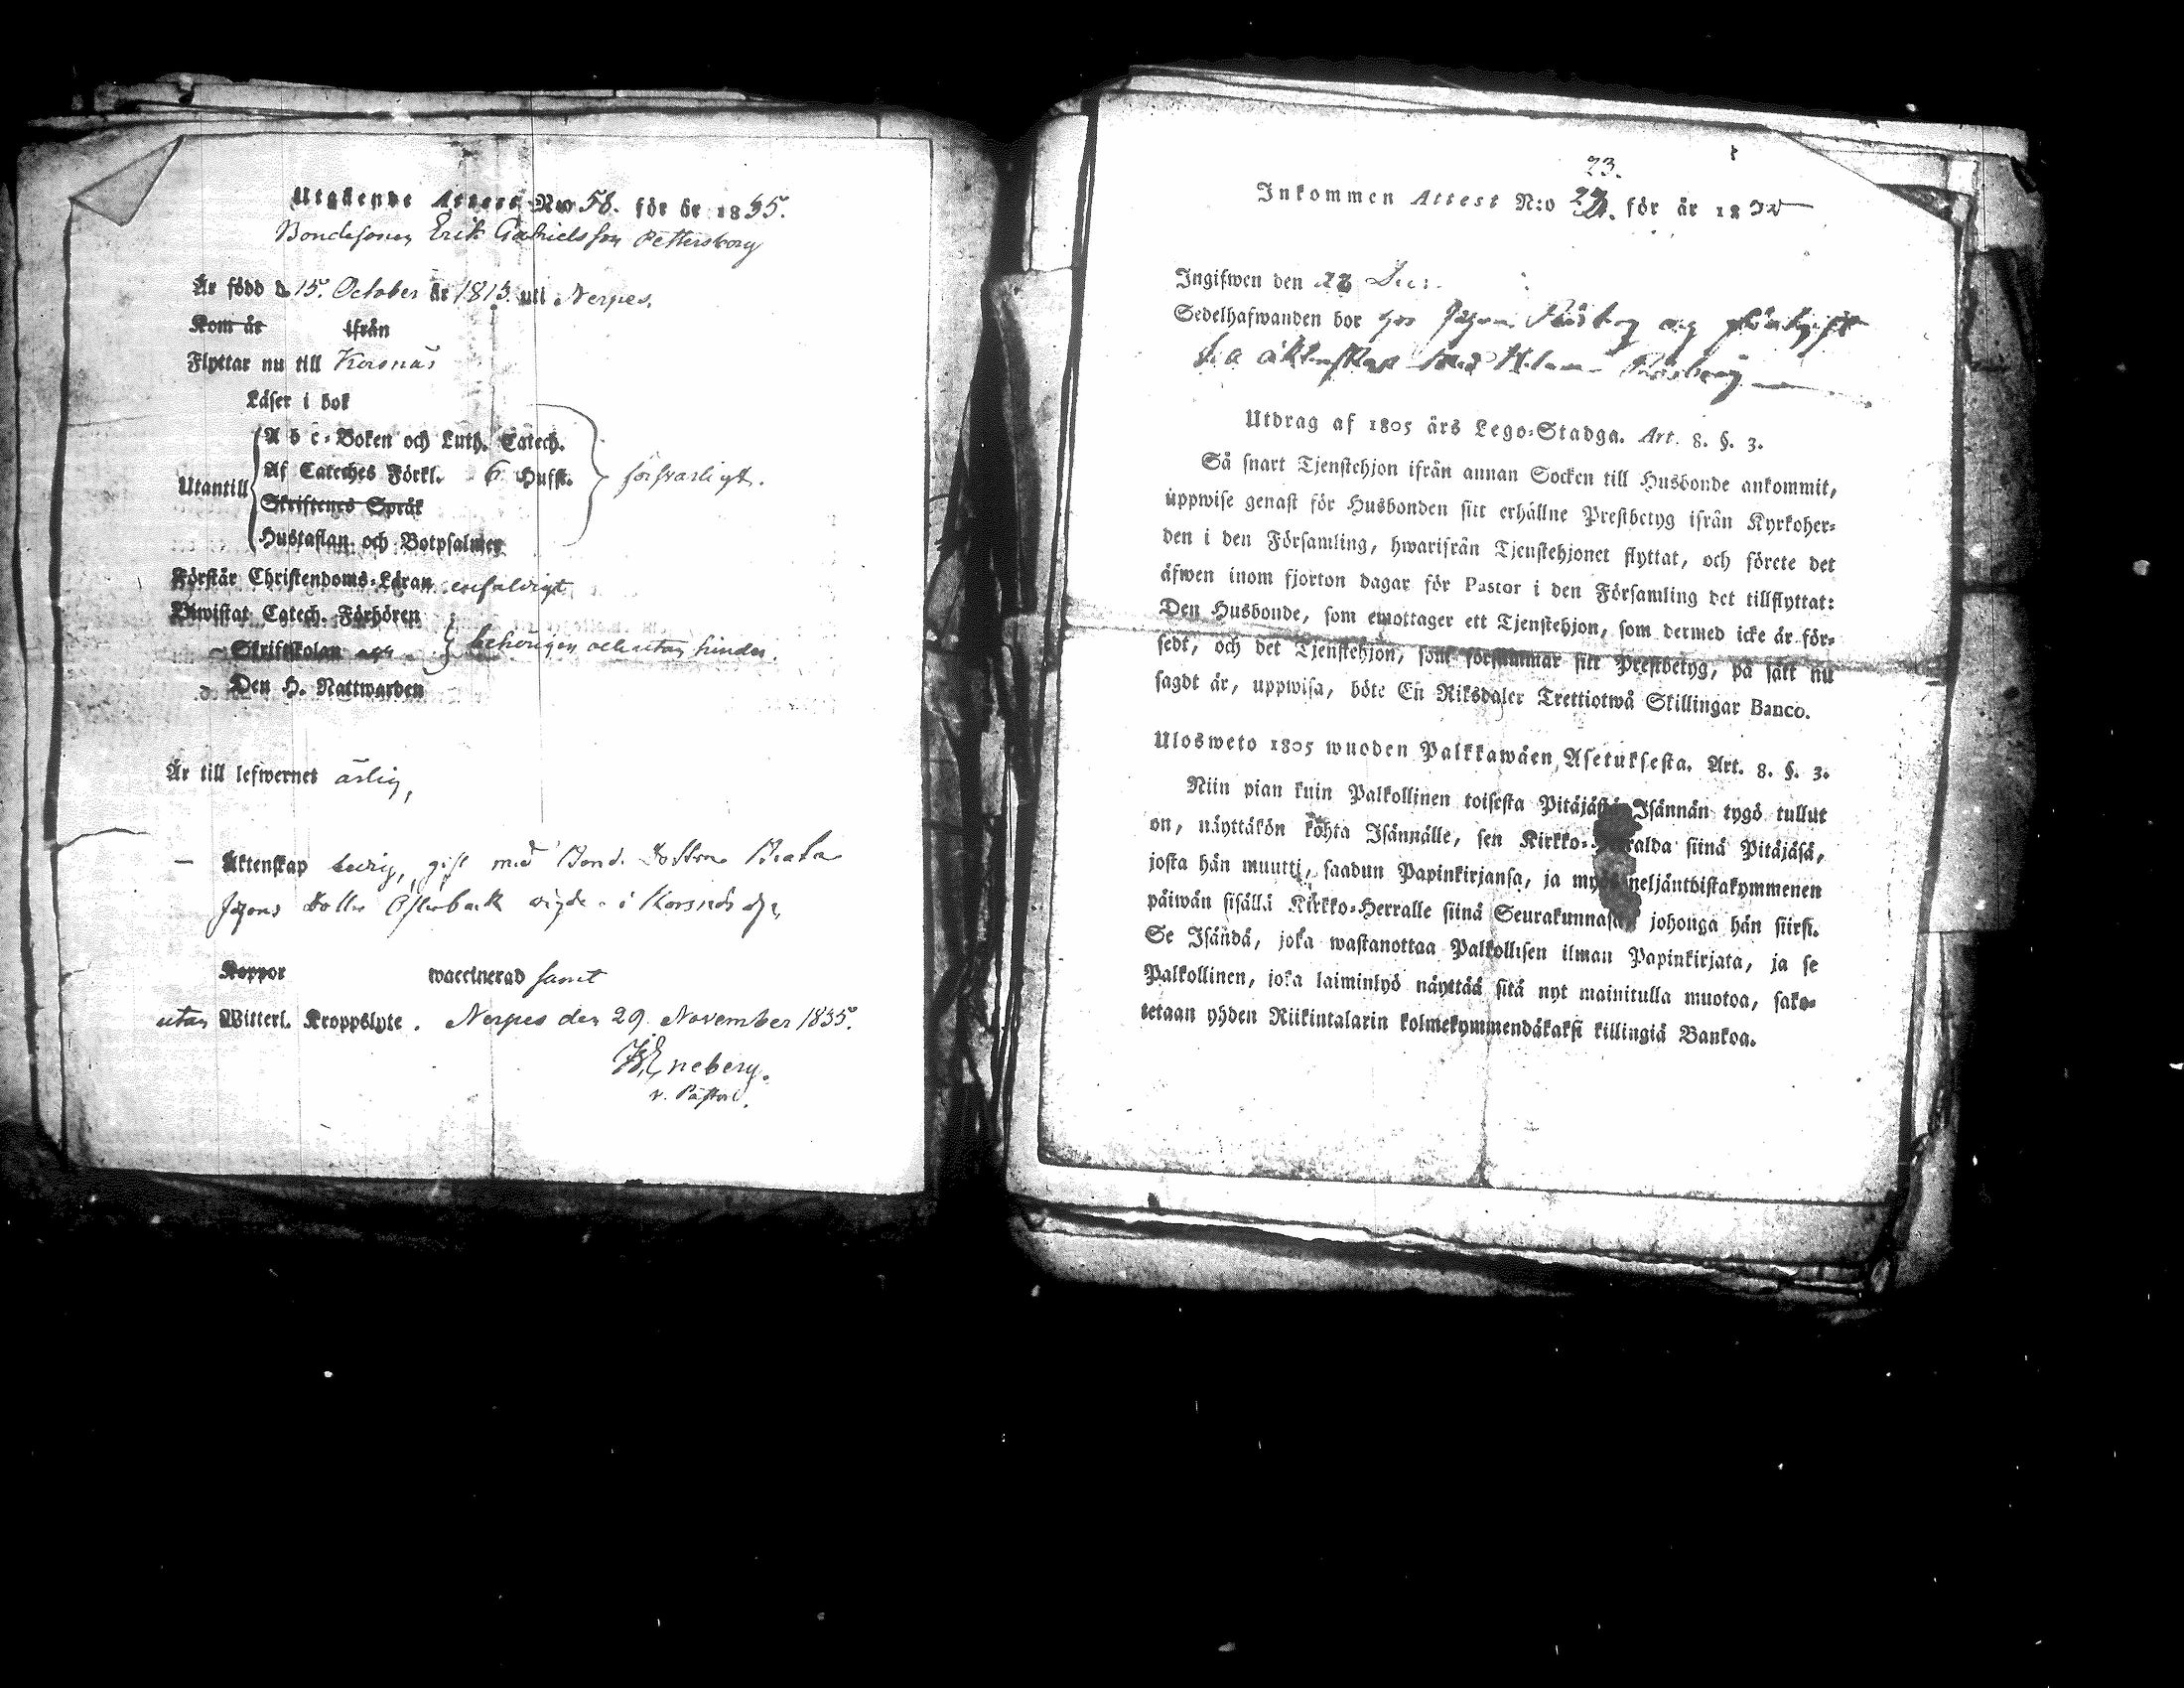 Utgående Attest N:o 58. för år 1835.
Bondesonen Erik Gabrielsson Pettersborg
Är född d. 15. October år 1813. uti Nerpes.
Kom år ifrån
Flyttar nu till Korsnäs
Läser i bok
Utantill
A b c-Boken och Luth. Catech.
Af Cateches Förkl. 6 Hufst.
Skriftenes Språk
Hustaflan och Botpsalmer
försvarligt.
Förstår Christendoms-Läran enfaldigt
Biwistat Catech. Förhören
Skriftskolan
Den H. Nattwarden
behörigen och utan hinder.
Är till lefwernet ärlig,
Äktenskap ledig, gift med Bond. Dottren Beata
Johans Dotter Österback i Korsnäs
Koppor waccinerad samt
utan Witterl. Kroppslyte. Nerpes den 29 November 1835.
Eneberg.
v. Pastor.
23.
Inkommen Attest N:o för år 18
Ingifwen den 22 Dec:
Sedelhafwanden bor hos Johan Rösberg
äktenskap med Rösberg
Utdrag af 1805 års Lego-Stadga. Art. 8. §. 3.
Så snart Tjenstehjon ifrån annan Socken till Husbonde ankommit,
uppwise genast för Husbonden sitt erhållne Prestbetyg ifrån Kyrkoher-
den i den Församling, hwarifrån Tjenstehjonet flyttat, och förete det
äfwen inom fjorton dagar för Pastor i den Församling det tillflyttat:
Den Husbonde, som emottager ett Tjenstehjon, som dermed icke är för-
sedt, och det Tjenstehjon, som försummar sitt Prestbetyg, på sätt nu
sagdt är, uppwisa, böte En Riksdaler Trettiotwå Skillingar Banco.
Ulosweto 1805 wuoden Palkkawäen Asetuksesta. Art. 8. §. 3.
Niin pian kuin Palkollinen toisesta Pitäjästä Isännän tygö tullut
on, näyttäkön kohta Isännälle, sen Kirkko-Herralda siinä Pitäjäsä,
josta hän muutti, saadun Papinkirjansa, ja myös neljäntoistakymmenen
päiwän sisällä Kirkko-Herralle siinä Seurakunnasa, johonga hän siirsi.
Se Isändä, joka wastanottaa Palkollisen ilman Papinkirjata, ja se
Palkollinen, joka laiminlyö näyttää sitä nyt mainitulla muotoa, sako-
tetaan yhden Riikintalarin kolmekymmendäkaksi killingiä Bankoa.